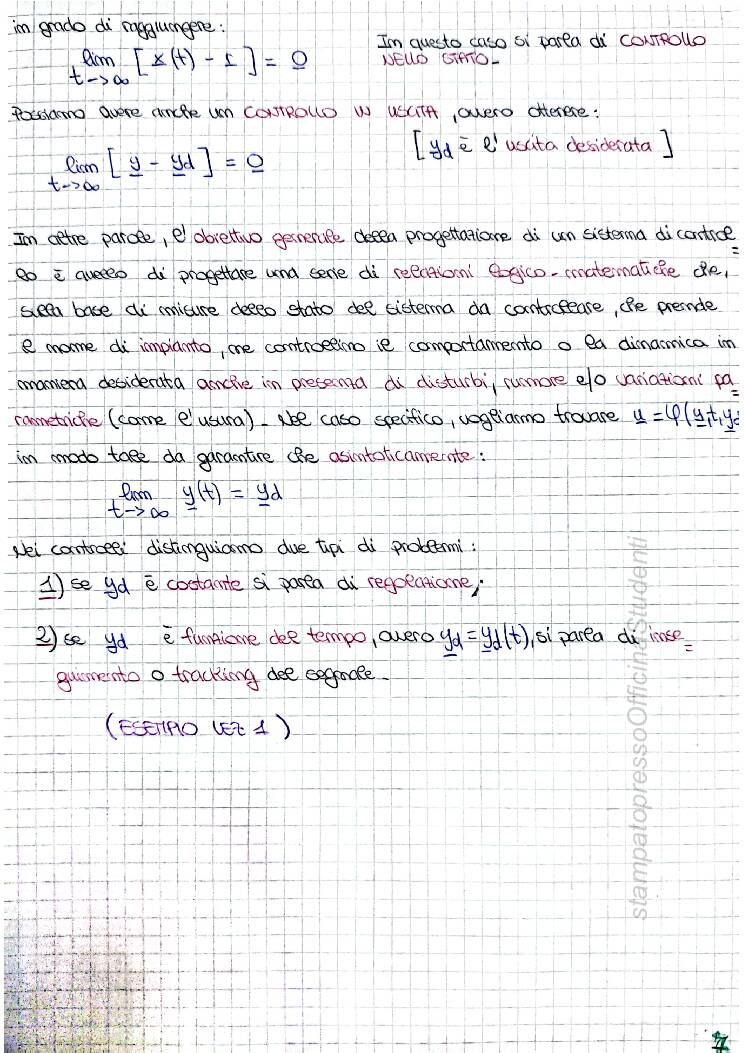 in grado di raggiungere:
lim [x(t) - r] = 0
t->∞
In questo caso si parla di CONTROLLO
NELLO STATO-
Possiamo avere anche un CONTROLLO IN USCITA, ovvero ottenere:
lim [y - yd] = 0
t->∞
[yd è l'uscita desiderata]
In altre parole, l'obiettivo generale della progettazione di un sistema di control=
lo è quello di progettare una serie di relazioni logico-matematiche che,
sulla base di misure dello stato del sistema da controllare, che prende
il nome di impianto, ne controllino il comportamento o la dinamica in
maniera desiderata anche in presenza di disturbi, rumore e/o variazioni pa=
rametriche (come l'usura)- Nel caso specifico, vogliamo trovare u = φ(y,t,yd
in modo tale da garantire che asintoticamente:
lim y(t) = yd
t->∞
Nei controlli distinguiamo due tipi di problemi:
1) se yd è costante si parla di regolazione;
2) se yd è funzione del tempo, ovvero yd = yd(t), si parla di inse=
guimento o tracking del segnale-
(ESEMPIO LEZ 1)
stampatopressoOfficineStudenti
7